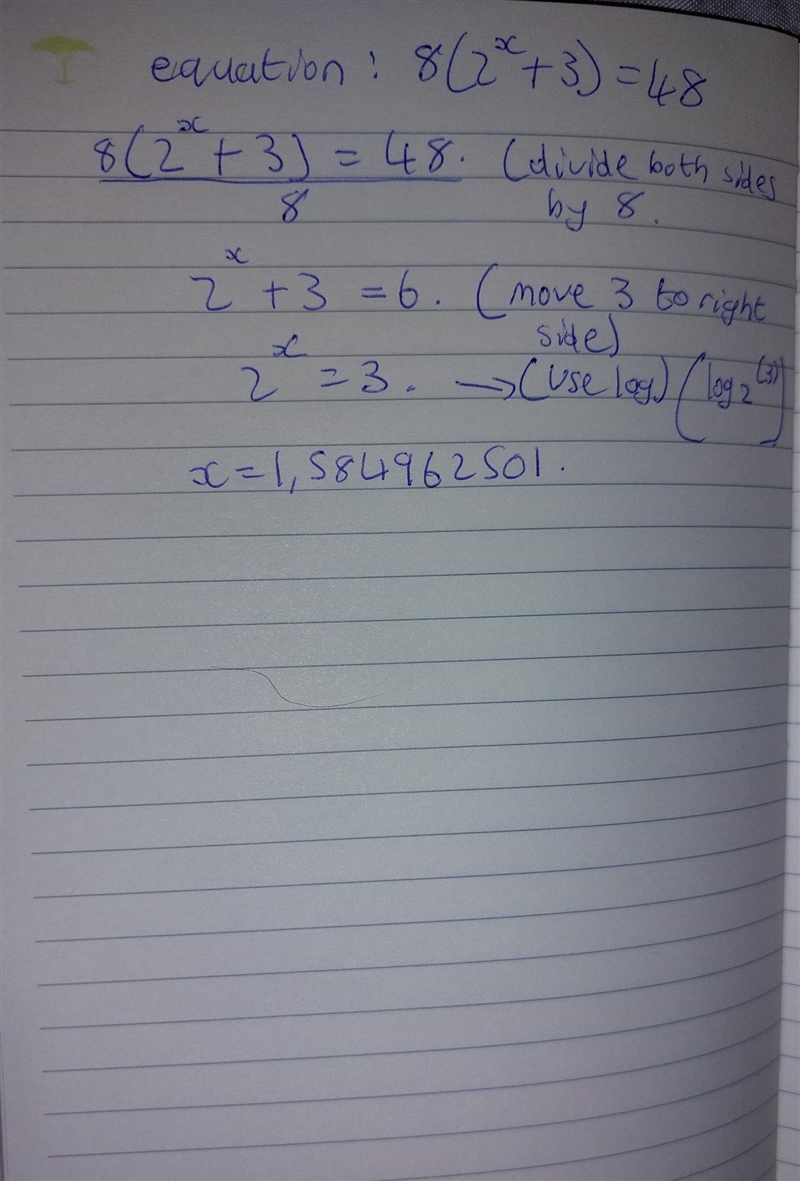 equation: 8(2^x + 3) = 48
8(2^x + 3) = 48. (divide both sides
8 by 8.
2^x + 3 = 6. (move 3 to right
side)
2^x = 3. → (use log) (log₂(3))
x = 1,584962501.